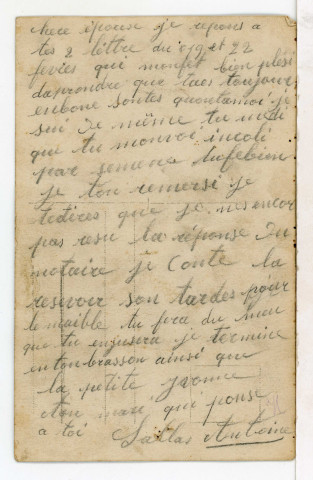 chere épouse je repons a
tes 2 lettre du 19 et 22
fevies qui monfet bien plesi
daprondre que taes toujour
enbone sontes quontamoi je
sui De même tu me di
que tu monvoi incoli
par semene tufebien
je ton remersi je
tedires que je nes encor
pas resu la réponse Du
notaire je Conte la
resevoir son tardes pour
le maible tu fera du mieu
que tu enjusera je termine
en ton-brasson ainsi que
la petite yvonne
ton mari qui ponse
a toi Sallas Antoine